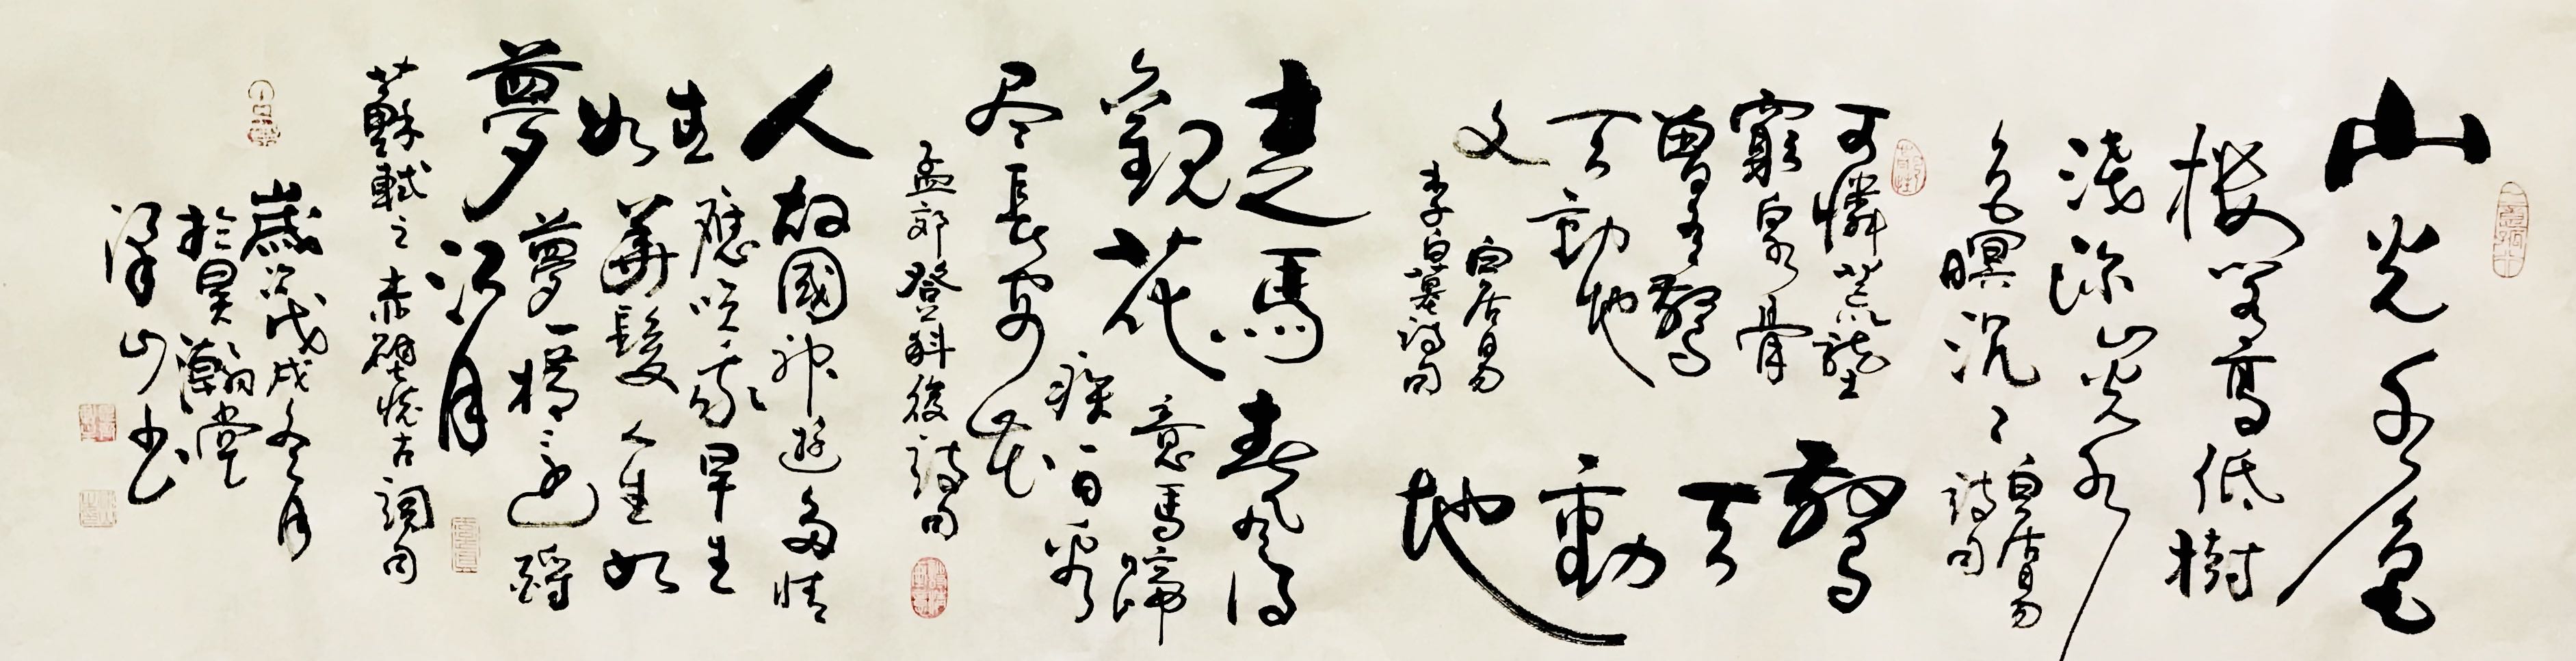 山光水色
楼閣高低樹
浅深山光水
色暝沉々
白居易
詩句
可憐荒壟
窮泉骨
曾有驚
天動地
文
白居易
李白墓詩句
驚天動地
走馬
觀花
春風得
意馬蹄
疾一日看
尽長安花
孟郊登科後詩句
人生如夢
故國神遊多情
應笑我早生
華髮人生如
夢一樽還酹
江月
蘇軾之赤壁懷古詞句
歲次戊戌冬月
於昊瀚堂
山书